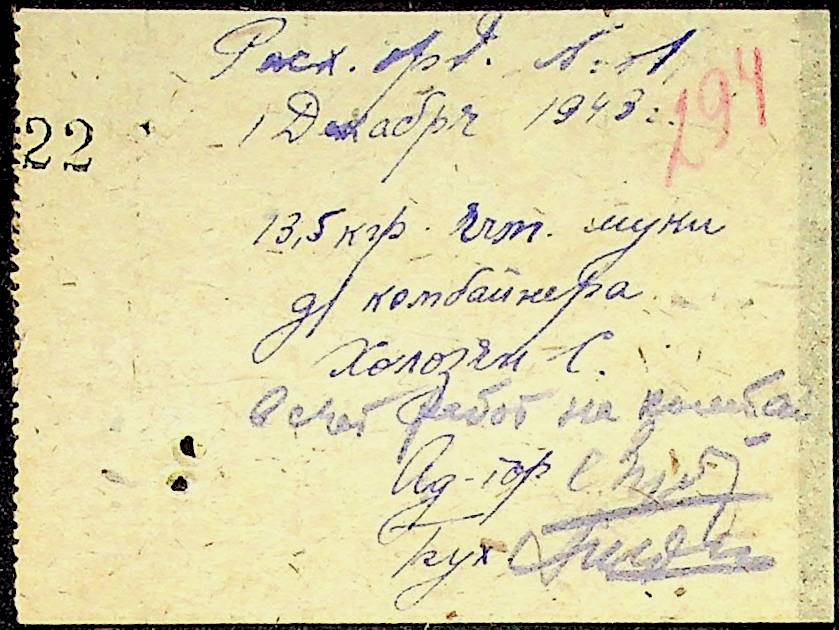 Расх. орд. №
294
1 Декабря 1943 г.
22
13,5 кгр. ячт. муки
д/ комбайнера
Холозян С.
в счет работ на комбай
Ад-тор
Бух.